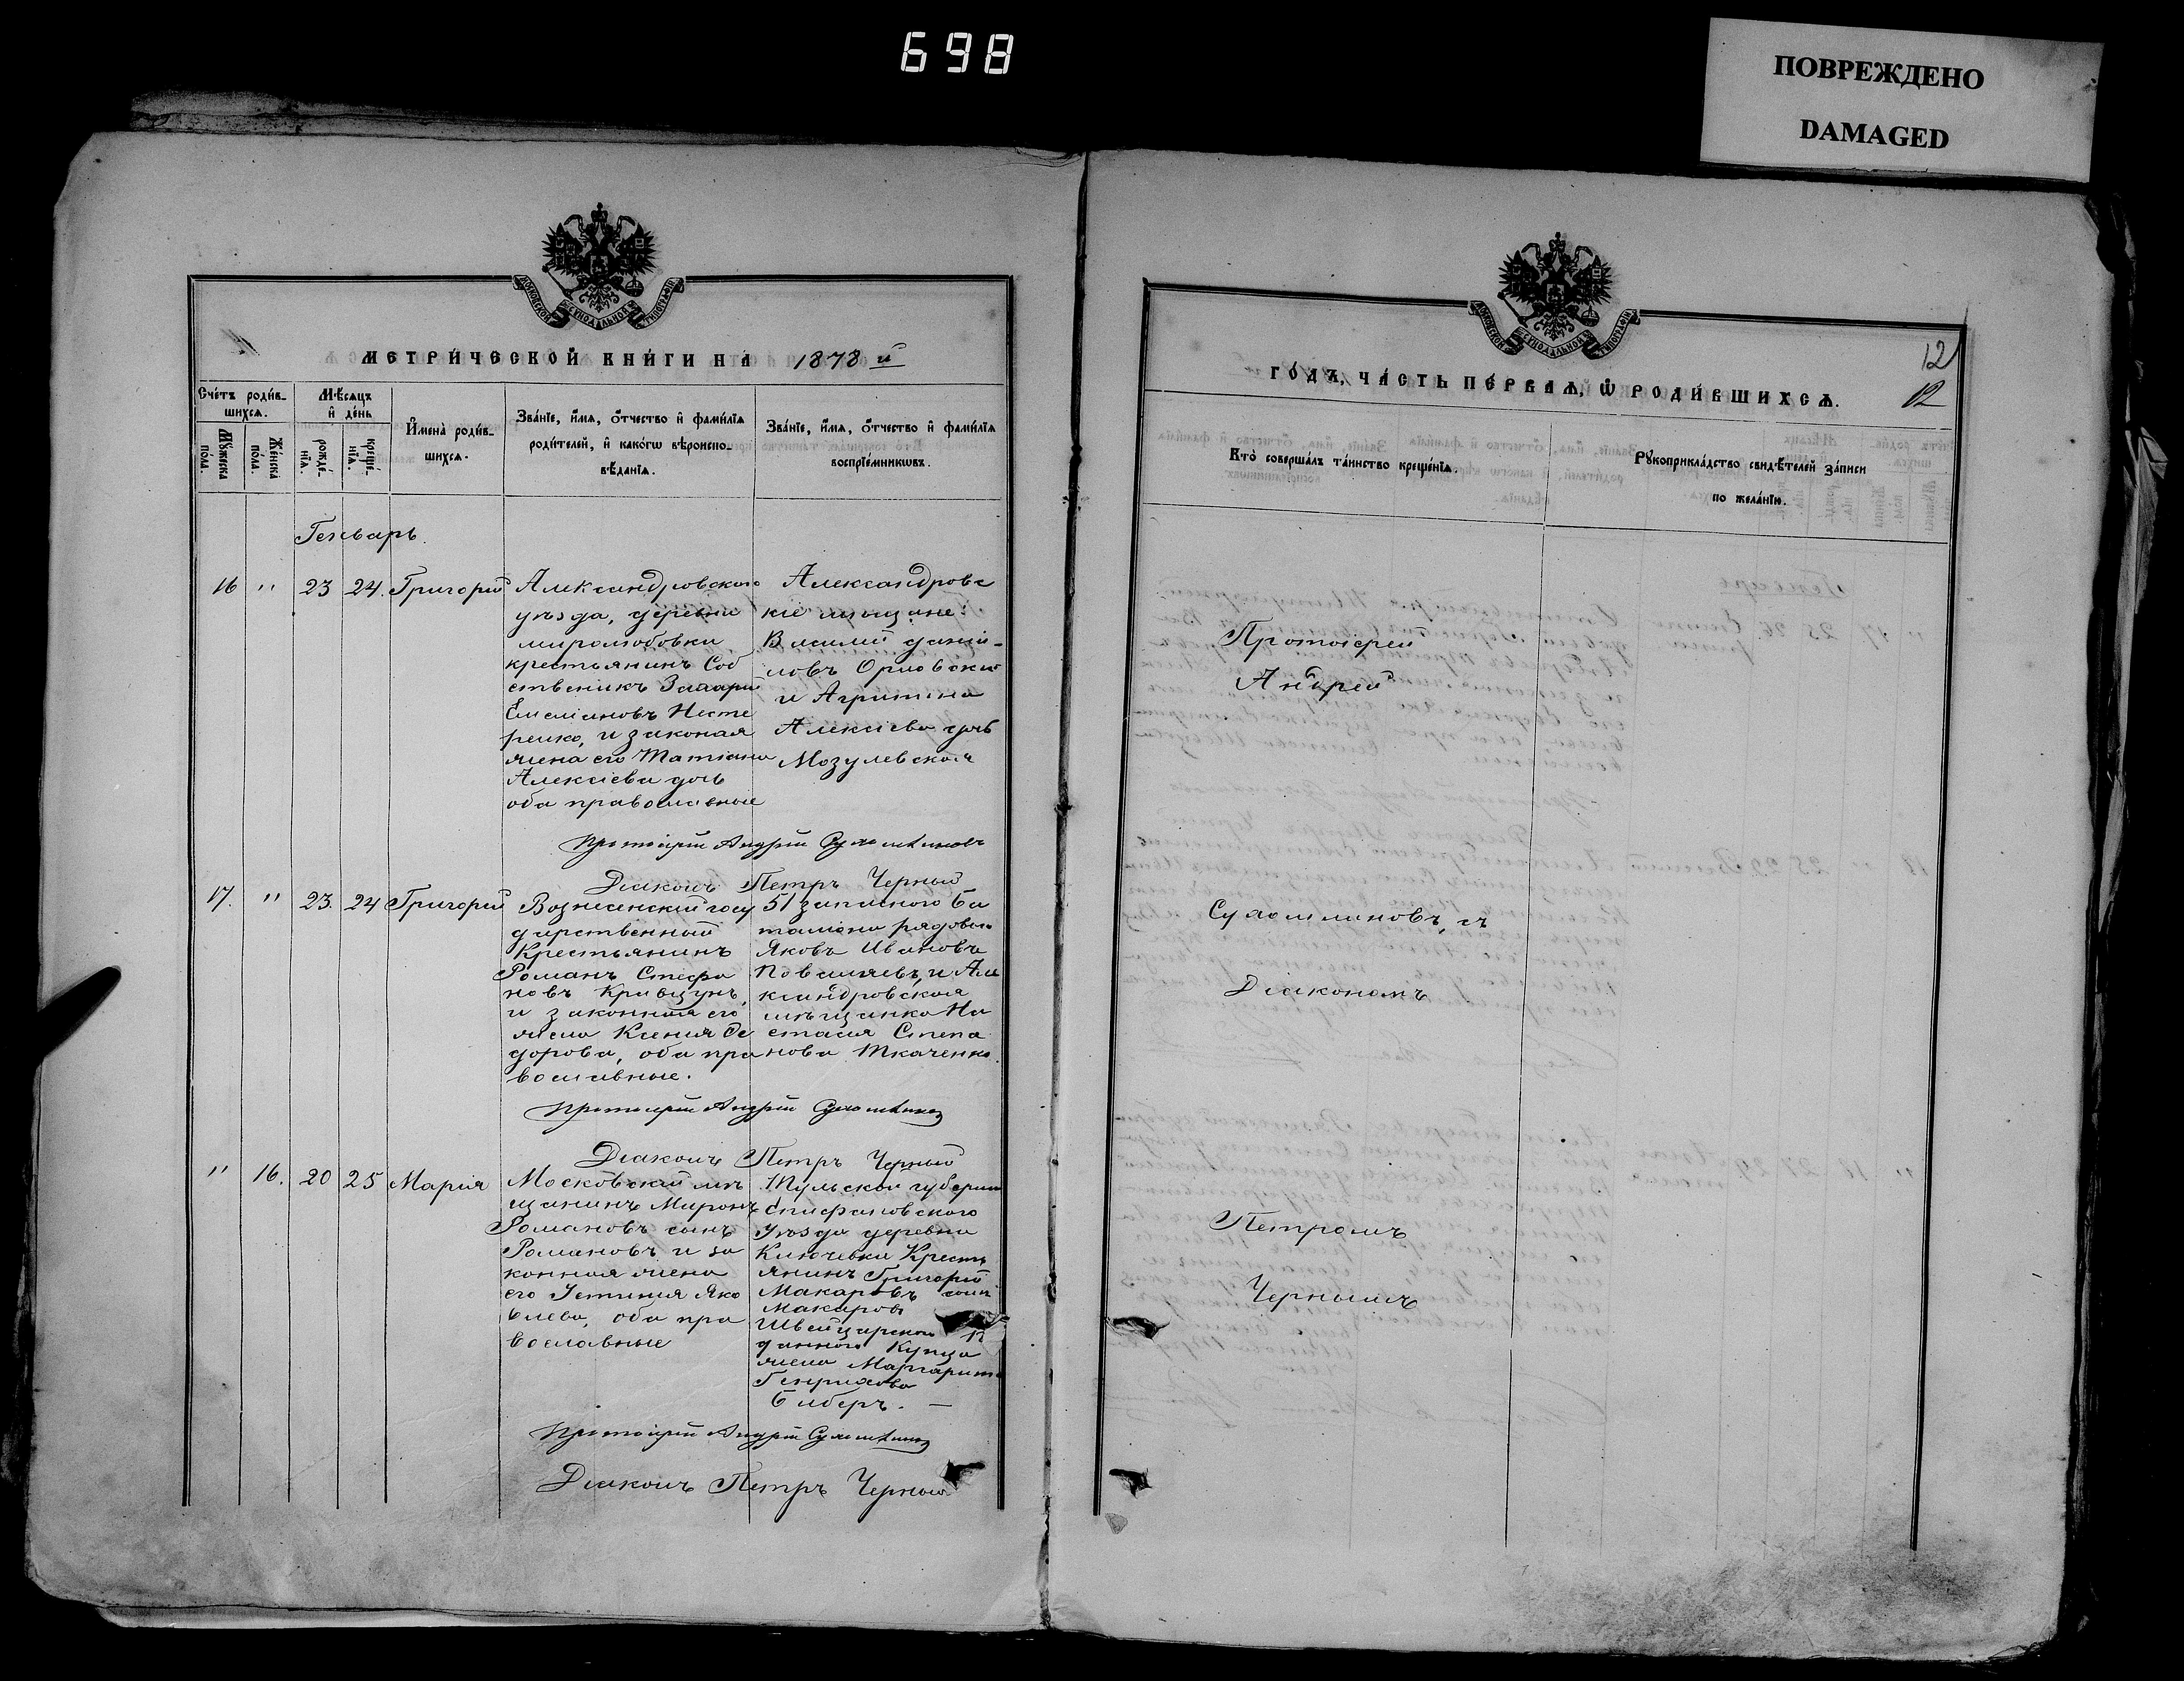 698
ПОВРЕЖДЕНО
DAMAGED
МОСКОВСКОЙ СѴНОДАЛЬНОЙ ТИПОГРАФІИ
МЕТРИ́ЧЕСКОЙ КНИ́ГИ НА 1878 й
Сче́тъ роди́в-
шихсѧ.
Мꙋ́жеска по́ла.
Же́нска по́ла.
Мѣ́сѧцъ
и҆ де́нь
рожде́-
нїѧ.
креще́-
нїѧ.
И҆мена̀ роди́в-
шихсѧ.
Зва́нїе, и҆́мѧ, ѻ҆́тчество и҆ фами́лїѧ
роди́телей, и҆ како́гѡ вѣроиспо-
вѣ́данїѧ.
Зва́нїе, и҆́мѧ, ѻ҆́тчество и҆ фами́лїѧ
воспрїе́мникѡвъ.
Генварь.
16 " 23 24. Григорій
Александровского
уѣзда, деревни
миролюбовки
крестьянинъ Соб
ственикъ Захарій
Емеліановъ Несте
ренко, и законая
жена его Татіана
Алексіева дочь
оба православные
Александровс
кіе мѣщане:
Василій даній-
ловъ Орловскій
и Агрипина
Алексіева дочь
Мозулевская
Протоіерей Андрей Сухомлиновъ
Діаконъ Петръ Черный
17. " 23. 24 Григорій
Вознесенскій госу
дарственный
Крестьянинъ
Романъ Стефа
новъ Кривцунъ,
и законная его
жена Ксения Ѳе
дорова, оба пра
вославные.
51 запасного ба
таліона рядовой
Яковъ Ивановъ
Поваляевъ, и Але
ксандровская
мѣщанка На
стасия Степа
нова Ткаченко.
Протоіерей Андрей Сухомлиновъ
Діаконъ Петръ Черный
" 16. 20 25 Мария
Московский мѣ
щанинъ Миронъ
Романовъ сынъ
Романовъ и за
конная жена
его Устиния Яко
влева, оба пра
вославные
Тульской губерніи
Епифановского
Уѣзда деревни
Ключевки Кресть
янинъ Григорій
Макаровъ сынъ
Макаровъ
Швейцарского
данного Купца
жена Маргарита
Генрихова
Билберъ. —
Протоіерей Андрей Сухомлиновъ
Діаконъ Петръ Черный
МОСКОВСКОЙ СѴНОДАЛЬНОЙ ТИПОГРАФІИ
12
12
ГО́ДЪ, ЧА́СТЬ ПЕ́РВАѦ, Ѡ҆ РОДИ́ВШИХСѦ.
Кто̀ соверша́лъ та́инство креще́нїѧ.
Рꙋкоприкла́дство свидѣ́телей за́писи
по жела́нїю.
Протоіерей
Андрей
Сухомлиновъ, съ
Діакономъ
Петромъ
Чернымъ